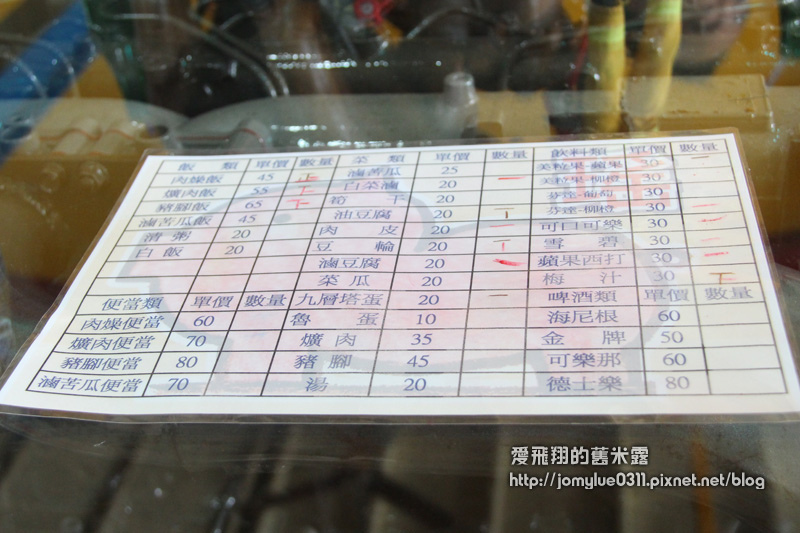 飯 類 單價 數量 菜 類 單價 數量 飲料類 單價 數量
肉燥飯 45 正 滷苦瓜 25 美粒果-蘋果 30 一
爌肉飯 55 白菜滷 20 一 美粒果-柳橙 30
豬腳飯 65 下 筍干 20 芬達-葡萄 30
滷苦瓜飯 45 油豆腐 20 芬達-柳橙 30 一
清粥 20 肉皮 20 一 可口可樂 30 一
白飯 20 豆輪 20 雪碧 30 一
滷豆腐 20 一 蘋果西打 30 一
菜瓜 20 梅汁 30 下
便當類 單價 數量 九層塔蛋 20 一 啤酒類 單價 數量
肉燥便當 60 魯蛋 10 海尼根 60
爌肉便當 70 爌肉 35 金牌 50
豬腳便當 80 豬腳 45 可樂那 60
滷苦瓜便當 70 湯 20 德士樂 80
愛飛翔的舊米露
http://jomylue0311.pixnet.net/blog